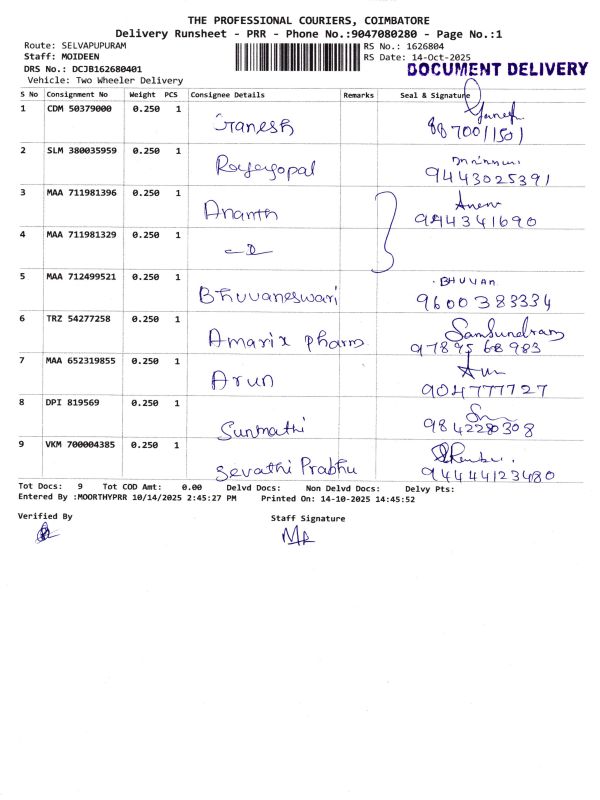 THE PROFESSIONAL COURIERS, COIMBATORE
Delivery Runsheet - PRR - Phone No.:9047080280 - Page No.:1
Route: SELVAPUPURAM
RS No.: 1626804
Staff: MOIDEEN
RS Date: 14-Oct-2025
DRS No.: DCJB162680401
DOCUMENT DELIVERY
Vehicle: Two Wheeler Delivery
S No Consignment No Weight PCS Consignee Details Remarks Seal & Signature
1 CDM 50379000 0.250 1 Ganesh Ganesh
8870011501
2 SLM 380035959 0.250 1 Rajagopal
9443025391
3 MAA 711981396 0.250 1 Ananth
944341690
4 MAA 711981329 0.250 1
5 MAA 712499521 0.250 1 Bhuvaneswari BHUVAN
9600383334
6 TRZ 54277258 0.250 1 Amarix pharm Samsundram
9789568983
7 MAA 652319855 0.250 1 Arun
904777727
8 DPI 819569 0.250 1 Sunmathi
9842280308
9 VKM 700004385 0.250 1 Sevathi Prabhu
94444123480
Tot Docs: 9 Tot COD Amt: 0.00 Delvd Docs: Non Delvd Docs: Delvy Pts:
Entered By :MOORTHYPRR 10/14/2025 2:45:27 PM Printed On: 14-10-2025 14:45:52
Verified By Staff Signature